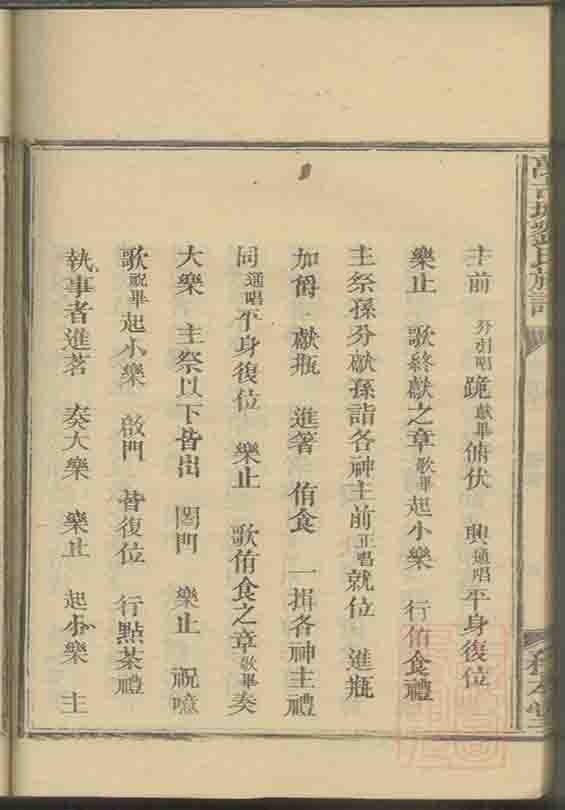 主前 分引唱 跪 獻畢 俯伏 興 通唱 平身復位
樂止 歌終獻之章 歌畢 起小樂 行侑食禮
主祭孫分獻孫詣各神主前 正唱 就位 進瓶
加爵 獻瓶 進箸 侑食 一揖各神主禮
同 通唱 平身復位 樂止 歌侑食之章 歌畢 奏
大樂 主祭以下皆出 閤門 樂止 祝噫
歌 祝畢 起小樂 啟門 皆復位 行點茶禮
執事者進茗 奏大樂 樂止 起小樂 主